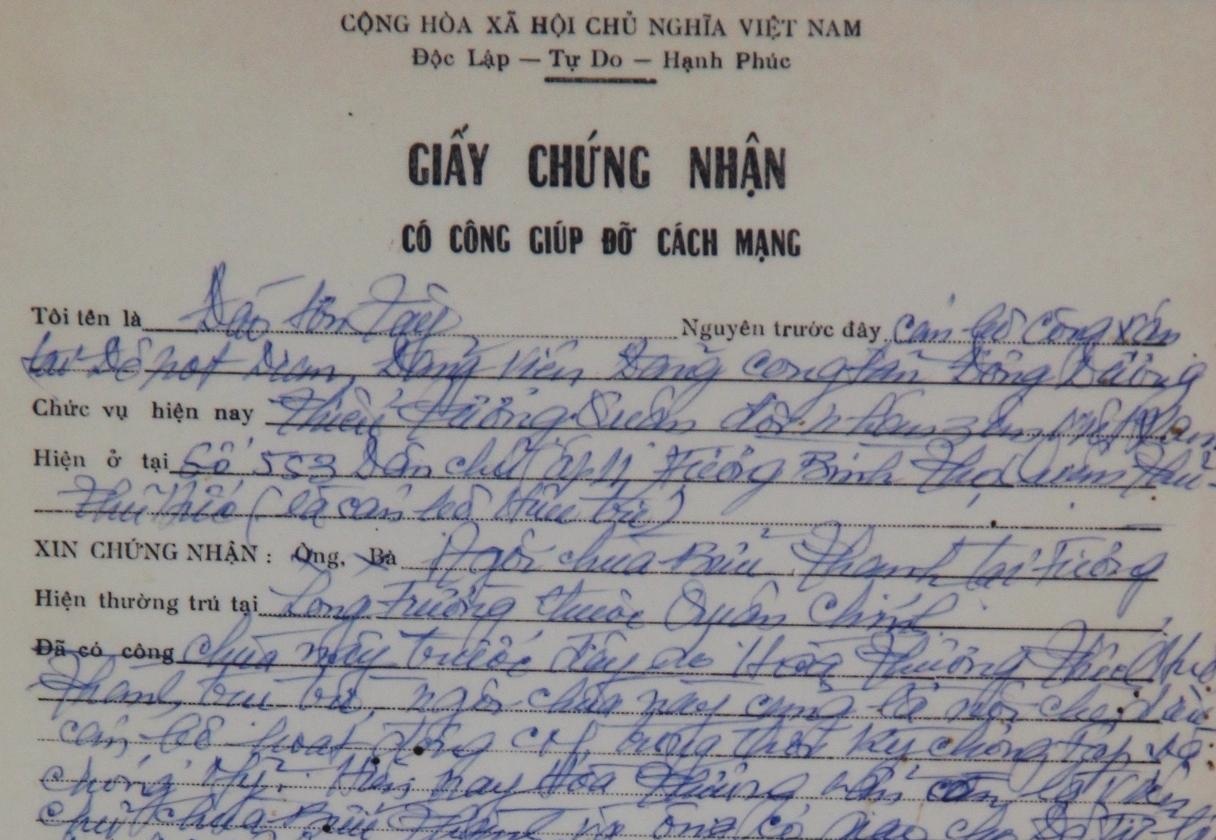 CỘNG HÒA XÃ HỘI CHỦ NGHĨA VIỆT NAM
Độc Lập — Tự Do — Hạnh Phúc
GIẤY CHỨNG NHẬN
CÓ CÔNG GIÚP ĐỠ CÁCH MẠNG
Tôi tên là Đào Sơn Tây Nguyên trước đây cán bộ công vận
tại Đề pot Dian, Đảng viên Đảng cộng sản Đông Dương
Chức vụ hiện nay Thiếu tướng Quân đội nhân dân Việt Nam
Hiện ở tại Số 553 Dân chủ (ấp 1) Phường Bình Thọ
Thủ Đức (là cán bộ Hưu trí)
XIN CHỨNG NHẬN : Ông, Bà Ngôi chùa Bửu Thạnh tại Phường
Hiện thường trú tại Long Trường thuộc Quận Chính
Đã có công chùa này trước đây do Hòa Thượng Thích
trụ trì, ngôi chùa này cũng là nơi che dấu
cán bộ hoạt động CM, trong thời kỳ chống Pháp và
chống Mỹ. Hiện nay Hòa Thượng vẫn còn là
chùa Bửu Thạnh